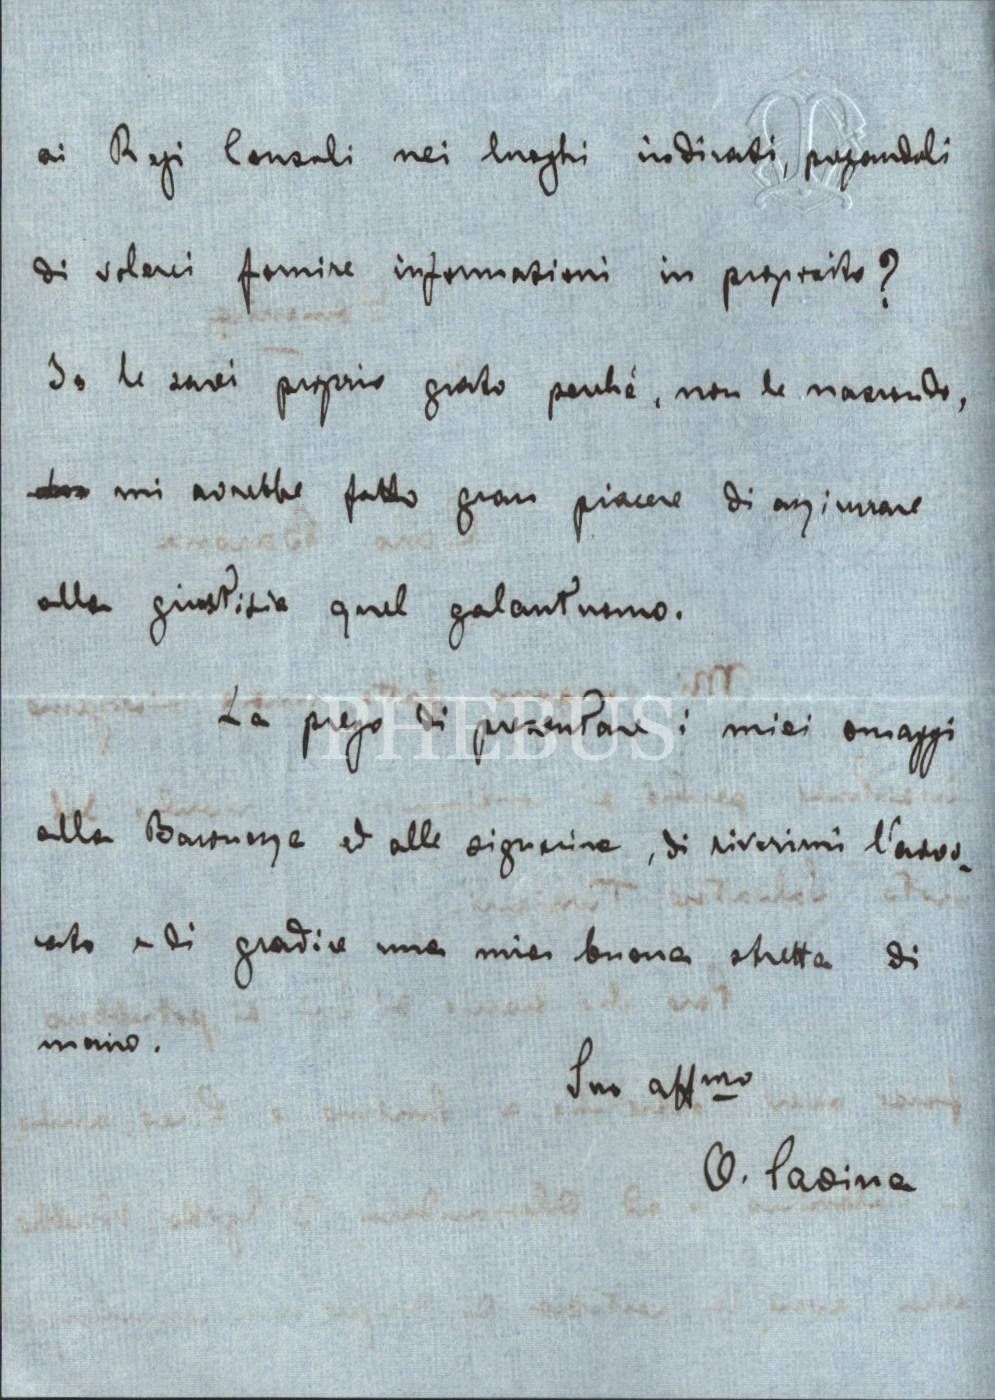 ai Regi Consoli nei luoghi indicati, pregandoli
di volerci fornire informazioni in proposito?
Io le sarei proprio grato perché, non le nascondo,
mi avrebbe fatto gran piacere di assicurare
alla giustizia quel galantuomo.
La prego di presentare i miei omaggi
PHEBUS
alla Baronessa ed alle signorine, di riverirmi l'avvo-
cato e di gradire una mia buona stretta di
mano.
Suo affmo
O.